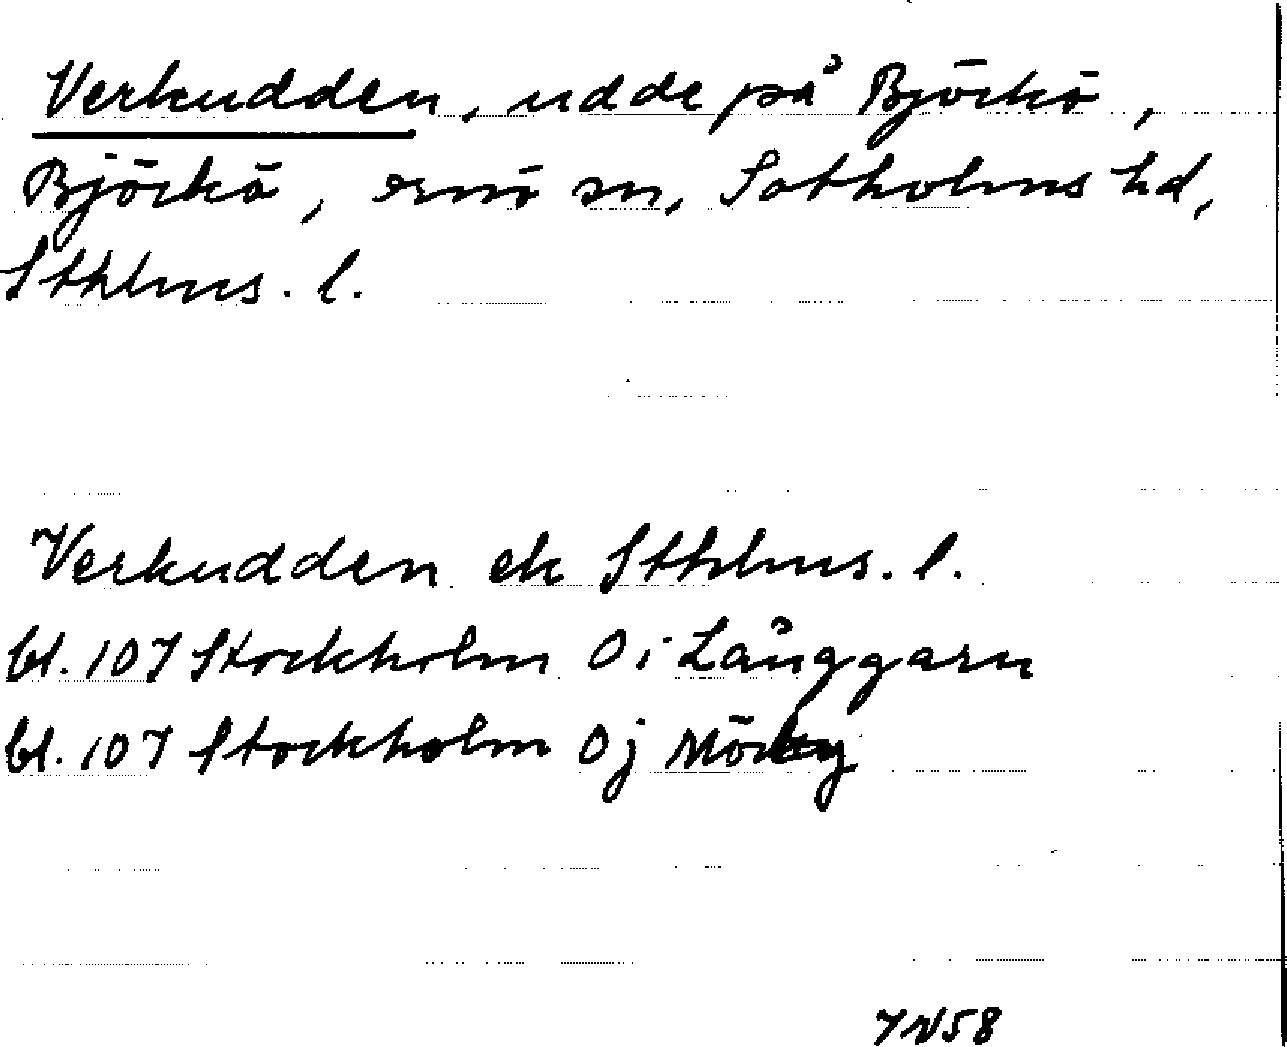 Verkudden, udde på Björkö,
Björkö, Ornö sn, Sotholms hd,
Sthlms. l.
Verkudden ek Sthlms. l.
bl. 107 Stockholm O i Långgarn
bl. 107 Stockholm O j
58